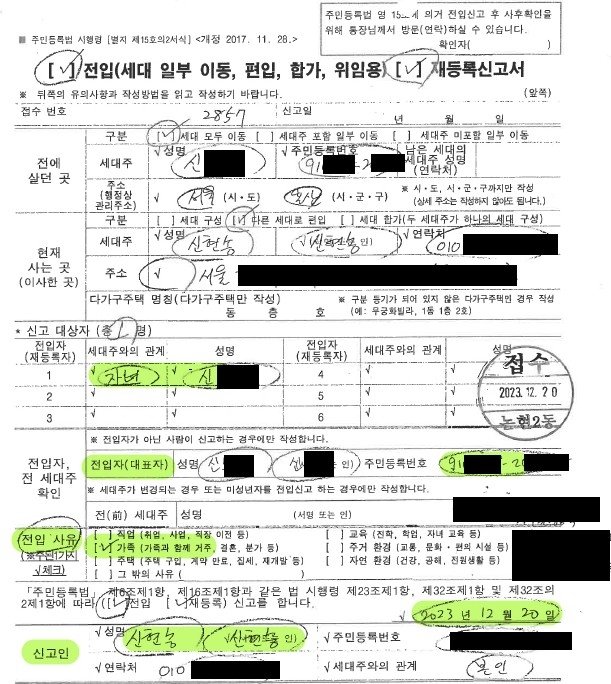 주민등록법 영 15조에 의거 전입신고 후 사후확인을
위해 통장님께서 방문(연락)하실 수 있습니다.
확인자( )
■ 주민등록법 시행령 [별지 제15호의2서식] <개정 2017. 11. 28.>
[√]전입(세대 일부 이동, 편입, 합가, 위임용) [√] 재등록신고서
※ 뒤쪽의 유의사항과 작성방법을 읽고 작성하기 바랍니다. (앞쪽)
접수 번호 2857 신고일 년 월 일
전에 살던 곳
구분 [√]세대 모두 이동 [ ]세대주 포함 일부 이동 [ ] 세대주 미포함 일부 이동
세대주 √성명 신 √주민등록번호 91 - 2 남은 세대의 세대주 성명 (연락처)
주소 (행정상 관리주소) √ 서울 (시·도) (시·군·구) ※ 시·도, 시·군·구까지만 작성 (상세 주소는 작성하지 않아도 됩니다.)
현재 사는 곳 (이사한 곳)
구분 [ ]세대 구성 [√]다른 세대로 편입 [ ]세대 합가(두 세대주가 하나의 세대 구성)
세대주 √성명 신현농 신현농 인) √연락처 010
주소 √ 서울
다가구주택 명칭(다가구주택만 작성) 동 층 호
※ 구분 등기가 되어 있지 않은 다가구주택만 경우 작성 (예: 무궁화빌라, 1동 1층 2호)
* 신고 대상자 (총 1 명)
전입자 (재등록자) 세대주와의 관계 성명 전입자 (재등록자) 세대주와의 관계 성명
1 √자녀 √신 4 √ √
2 √ √ 5 √
3 √ √ 6 √
접수
2023. 12. 20
논현2동
전입자, 전 세대주 확인
※ 전입자가 아닌 사람이 신고하는 경우에만 작성합니다.
전입자(대표자) 성명 신 신 인) 주민등록번호 91 - 2
※ 세대주가 변경되는 경우 또는 미성년자를 전입신고 하는 경우에만 작성합니다.
전(前) 세대주 성명 (서명 또는 인)
전입 사유
√체크)
[ ]직업 (취업, 사업, 직장 이전 등) [ ]교육 (진학, 학업, 자녀 교육 등)
[√]가족 (가족과 함께 거주, 결혼, 분가 등) [ ]주거 환경 (교통, 문화·편의 시설 등)
[ ]주택 (주택 구입, 계약 만료, 집세, 재개발 등) [ ]자연 환경 (건강, 공해, 전원생활 등)
[ ]그 밖의 사유 ( )
「주민등록법」 제16조제1항과 같은 법 시행령 제23조제1항, 제32조제1항 및 제32조의
2제1항에 따라 ([√]전입 [√]재등록) 신고를 합니다.
2023 년 12 월 20 일
신고인
√성명 신현농 신현농 인) √주민등록번호
√연락처 010 √세대주와의 관계 본인